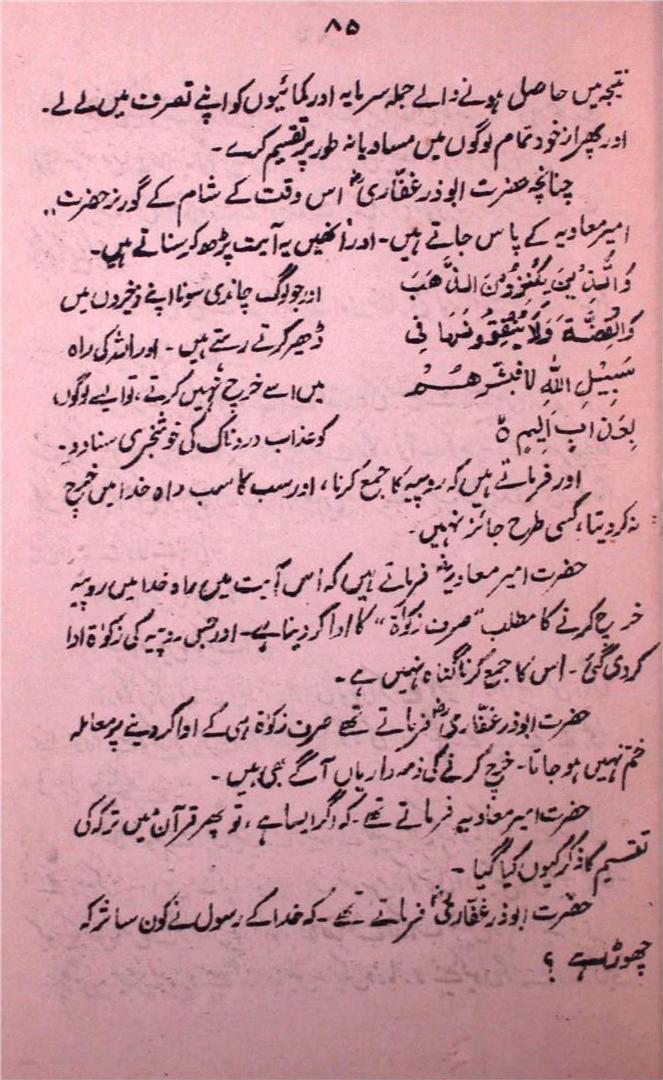 ۸۵
نتیجہ میں حاصل ہونے والے جملہ سرمایہ اور کمائیوں کو اپنے تصرف میں لے لے۔
اور پھر از خود تمام لوگوں میں مساویانہ طور پر تقسیم کرے۔
چنانچہ حضرت ابوذر غفاریؓ اس وقت کے شام کے گورنر حضرت
امیر معاویہ کے پاس جاتے ہیں۔ اور انھیں یہ آیت پڑھ کر سناتے ہیں۔
وَالَّذِیْنَ یَكْنِزُوْنَ الذَّهَبَ
وَالْفِضَّةَ وَلَا یُنْفِقُوْنَهَا فِی
سَبِیْلِ اللّٰهِ لا فَبَشِّرْهُمْ
بِعَذَابٍ اَلِیْمٍ ہ
اور جو لوگ چاندی سونا اپنے ذخیروں میں
ڈھیر کرتے رہتے ہیں۔ اور اللہ کی راہ
میں اسے خرچ نہیں کرتے، تو ایسے لوگوں
کو عذاب دردناک کی خوشخبری سنا دو۔
اور فرماتے ہیں کہ روپیہ کا جمع کرنا، اور سب کا سب راہ خدا میں خرچ
نہ کر دینا، کسی طرح جائز نہیں۔
حضرت امیر معاویہؓ فرماتے ہیں کہ اس آیت میں راہ خدا میں روپیہ
خرچ کرنے کا مطلب "صرف زکوٰۃ" کا ادا کر دینا ہے۔ اور جس روپیہ کی زکوٰۃ ادا
کر دی گئی۔ اس کا جمع کرنا گناہ نہیں ہے۔
حضرت ابوذر غفاریؓ فرماتے تھے صرف زکوٰۃ ہی کے ادا کر دینے پر معاملہ
ختم نہیں ہو جاتا۔ خرچ کرنے کی ذمہ داریاں آگے بھی ہیں۔
حضرت امیر معاویہ فرماتے تھے۔ کہ اگر ایسا ہے، تو پھر قرآن میں ترکہ کی
تقسیم کا ذکر کیوں کیا گیا۔
حضرت ابوذر غفاریؓ فرماتے تھے۔ کہ خدا کے رسول نے کون سا ترکہ
چھوڑا ہے ؟